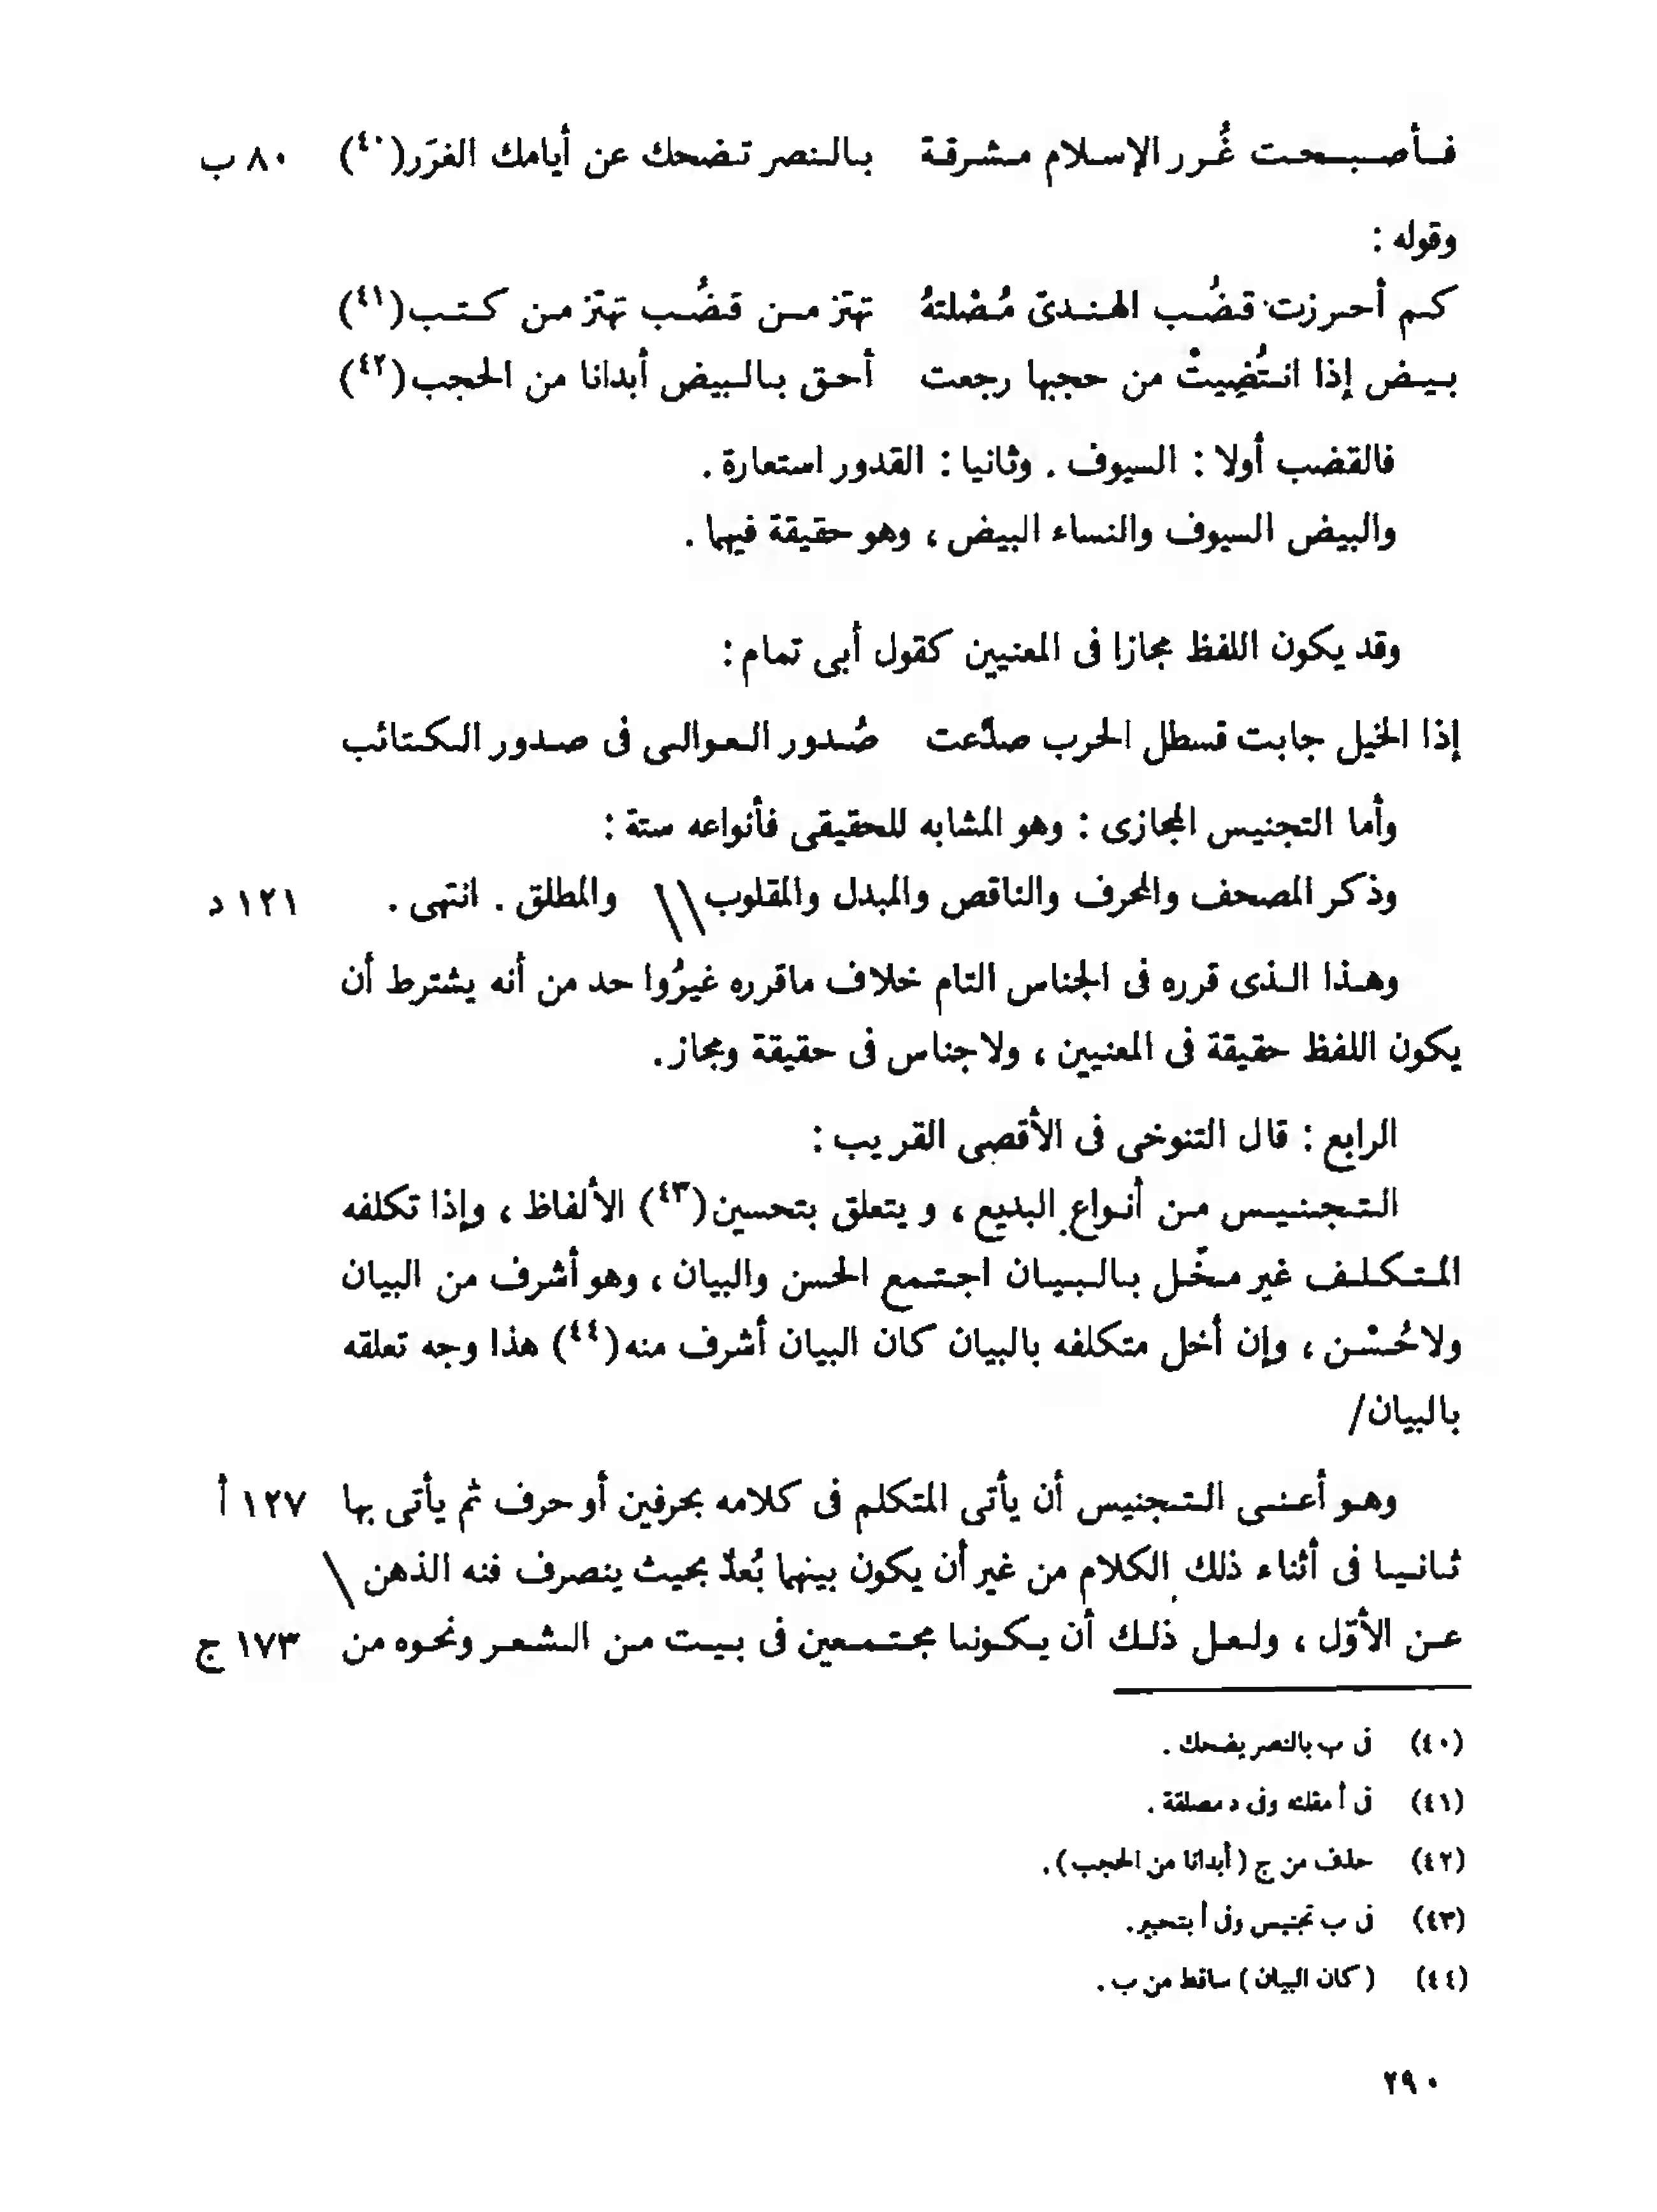 فأصبحت غُرر الإسلام مشرقة بالنصر تضحك عن أيامك الغرَر(٤٠) ٨٠ ب
وقوله :
كم أحرزت قضُب الهندىّ مُصْلتهُ تهتز من قضُب تهتز من كتب(٤١)
بيض إذا انتُضِيتْ من حجبها رجعت أحق بالبيض أبدانا من الحجب(٤٢)
فالقضب أولا : السيوف . وثانيا : القدور استعارة .
والبيض السيوف والنساء البيض ، وهو حقيقة فيهما .
وقد يكون اللفظ مجازا فى المعنيين كقول أبى تمام :
إذا الخيل جابت قسطل الحرب صدّعت صُدور العوالى فى صدور الكتائب
وأما التجنيس المجازى : وهو المشابه للحقيقى فأنواعه ستة :
وذكر المصحف والمحرف والناقص والمبدل والمقلوب \\ والمطلق . انتهى . ١٢١ د
وهذا الذى قرره فى الجناس التام خلاف ماقرره غيرُوا حد من أنه يشترط أن
يكون اللفظ حقيقة فى المعنيين ، ولاجناس فى حقيقة ومجاز .
الرابع : قال التنوخى فى الأقصى القريب :
التجنيس من أنواع البديع ، ويتعلق بتحسين(٤٣) الألفاظ ، وإذا تكلفه
المتكلف غير مخّل بالبيان اجتمع الحسن والبيان ، وهو أشرف من البيان
ولاحُسْن ، وإن أخل متكلفه بالبيان كان البيان أشرف منه(٤٤) هذا وجه تعلقه
بالبيان/
وهو أعنى التجنيس أن يأتى المتكلم فى كلامه بحرفين أو حرف ثم يأتى بها ١٢٧ أ
ثانيا فى أثناء ذلك الكلام من غير أن يكون بينهما بُعدٌ بحيث ينصرف فنه الذهن \
عن الأوّل ، ولعل ذلك أن يكونا مجتمعين فى بيت من الشعر ونحوه من ١٧٣ ج
(٤٠) فى ب بالنصر يضحك .
(٤١) فى أ مقلته وفى د مصلقة .
(٤٢) حذف من ج ( أبدانا من الحجب ) .
(٤٣) فى ب تجنيس وفى أ بتحبير .
(٤٤) ( كان البيان ) ساقط من ب .
٢٩٠